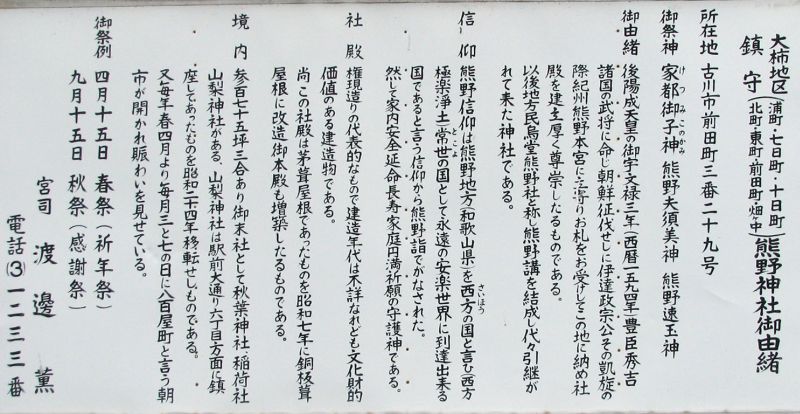 大柿地区
鎮守
(浦町・七日町・十日町
北町・東町・前田町・畑ケ中)
熊野神社御由緒
所在地 古川市前田町三番二十九号
御祭神 家都御子神 熊野夫須美神 熊野速玉神
けつみこのかみ
御由緒 後陽成天皇の御宇文禄三年(西暦一五九四年)豊臣秀吉
諸国の武将に命じ朝鮮征伐せしに伊達政宗公その凱旋の
際紀州熊野本宮に立寄りお札をお受けしこの地に納め社
殿を建立厚く尊崇したるものである。
以後地方民烏堂熊野社と称し熊野講を結成し代々引継が
れて来た神社である。
信仰 熊野信仰は熊野地方(和歌山県)を西方の国と言ひ(西方
さいほう
極楽浄土)常世の国として永遠の安楽世界に到達出来る
とこよ
国であると言う信仰から熊野詣でがなされた。
然して家内安全延命長寿家庭円満祈願の守護神である。
社殿 権現造りの代表的なもので建造年代は不詳なれども文化財的
価値のある建造物である。
尚この社殿は茅葺屋根であったものを昭和七年に銅板葺
屋根に改造御本殿も増築したるものである。
境内 参百七十五坪三合あり御末社として秋葉神社・稲荷社
山梨神社がある、山梨神社は駅前大通り六丁目方面に鎮
座してあったものを昭和二十四年移転せしものである。
又毎年春四月より毎月三と七の日に八百屋町と言う朝
市が開かれ賑わいを見せている。
御祭例 四月十五日 春祭(祈年祭)
九月十五日 秋祭(感謝祭)
宮司 渡邊薫
電話(3)一二三三番